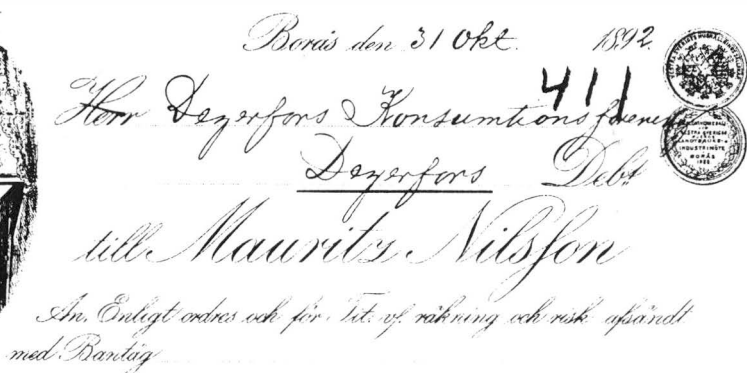 Borås den 31 Okt. 1892.
411
Herr Degerfors Konsumtionsförening
Degerfors Debt
till Mauritz Nilsson
An, Enligt ordres och för Tit. vf. räkning och risk afsändt
med Bantåg